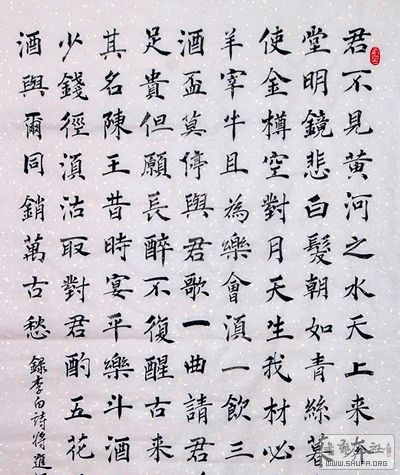 君不見黄河之水天上来奔
堂明鏡悲白髮朝如青絲暮
使金樽空對月天生我材必
羊宰牛且為樂會湏一飲三
酒盃莫停與君歌一曲請君
足貴但願長醉不復醒古来
其名陳王昔時宴平樂斗酒
少錢徑湏沽取對君酌五花
酒與爾同銷萬古愁
録李白詩將進
WWW.SHUFA.ORG